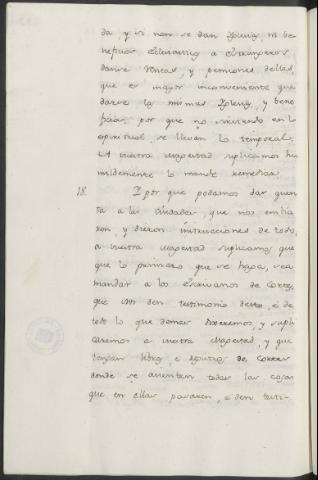 da y si non se dan Yglesias, ni be-
neficios Eclesiasticos a Estrangeros
danse Rentas, y pensiones dellas,
que es mayor inconveniente que
darse la misma Yglesia, y bene
ficios, por que no sirviendo en lo
espiritual, se llevan lo temporal.
A vuestra Magestad suplicamos hu
mildemente lo mande remediar.
18. Y por que podamos dar quen
ta a las Ciudades, que nos embia
ron y dieron instrucciones de todo,
a vuestra Magestad suplicamos que
que lo primero que se haga, sea
mandar a los Escrivanos de Cortes,
que nos den testimonio desto, è de
todo lo que demas hicieremos, y supli
caremos a vuestra Magestad, y que
tengan libro, è registro de Cortes
donde se asienten todas las cosas
que en ellas pasaren, è den testi-